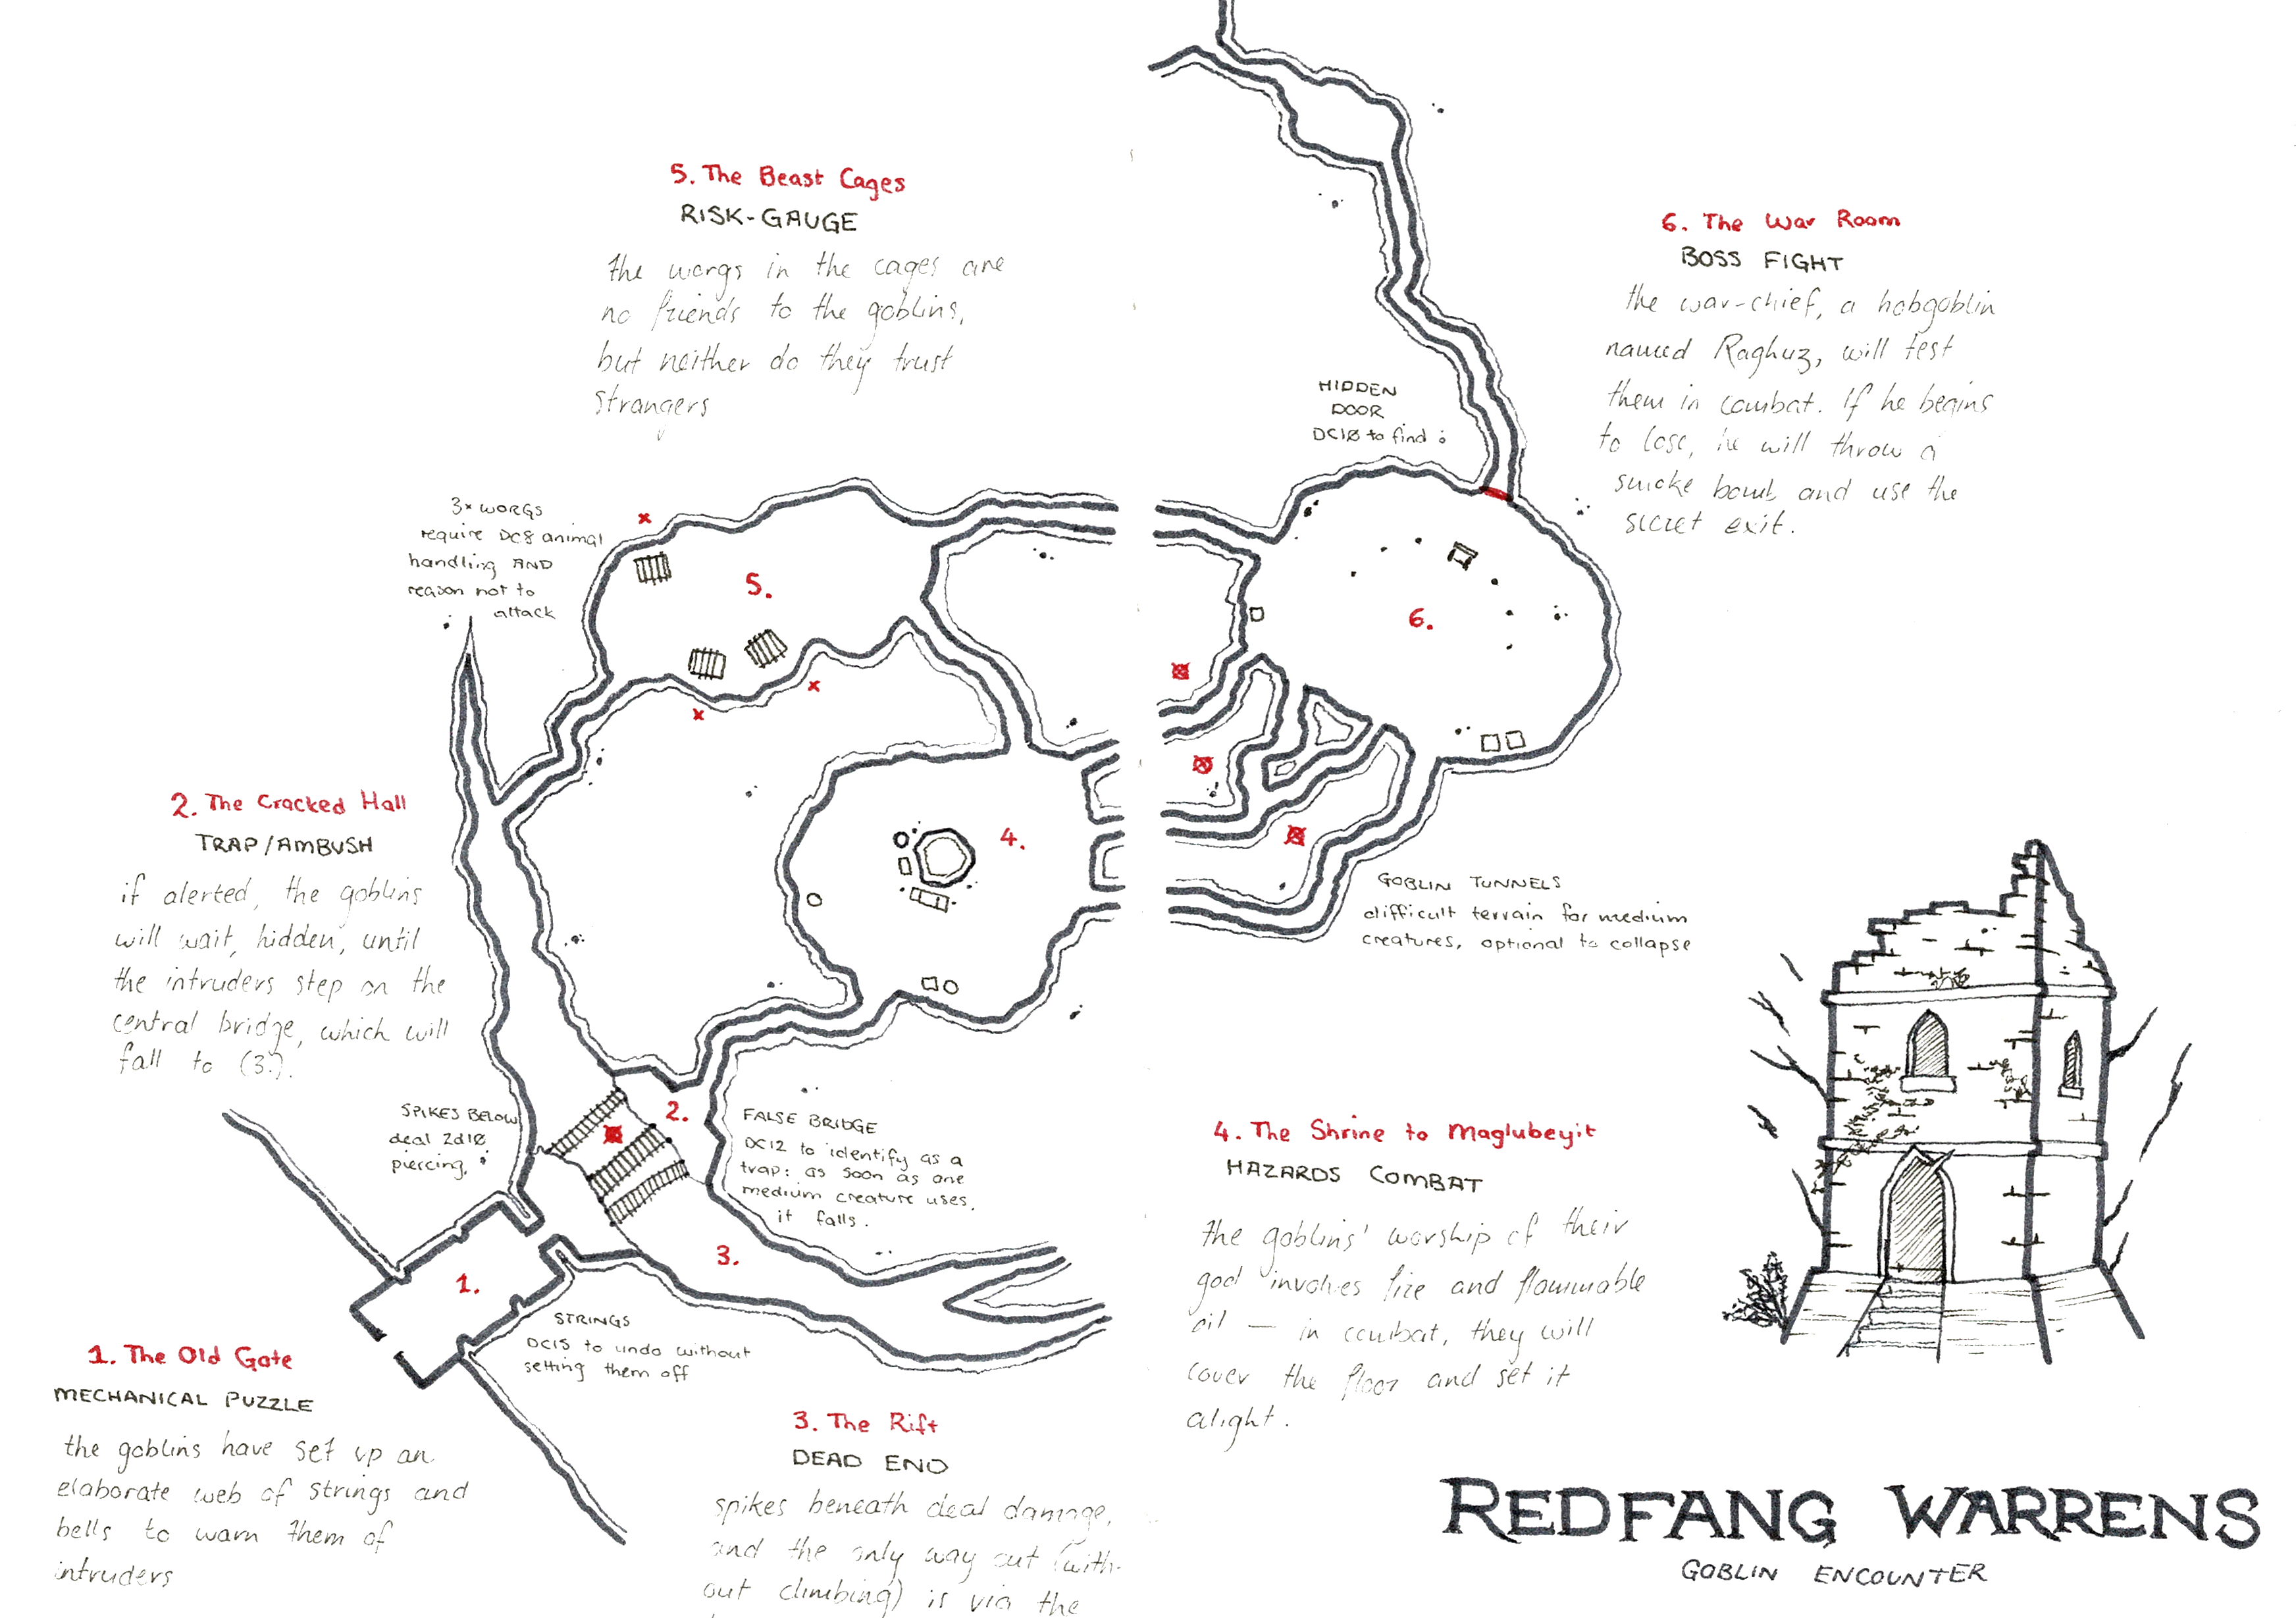 5. The Beast Cages
RISK-GAUGE
the worgs in the cages are
no friends to the goblins,
but neither do they trust
strangers
3x WORGS
require DC8 animal
handling AND
reason not to
attack
5.
2. The Cracked Hall
TRAP/AMBUSH
if alerted, the goblins
will wait, hidden, until
the intruders step on the
central bridge, which will
fall to (3.).
4.
SPIKES BELOW
deal 2d10
piercing.
2.
FALSE BRIDGE
DC12 to identify as a
trap: as soon as one
medium creature uses,
it falls.
3.
1.
STRINGS
DC15 to undo without
setting them off
1. The Old Gate
MECHANICAL PUZZLE
the goblins have set up an
elaborate web of strings and
bells to warn them of
intruders
3. The Rift
DEAD END
spikes beneath deal damage,
and the only way out (with-
out climbing) is via the
6. The War Room
BOSS FIGHT
the war-chief, a hobgoblin
named Raghuz, will test
them in combat. If he begins
to lose, he will throw a
smoke bomb and use the
secret exit.
HIDDEN
DOOR
DC10 to find
6.
GOBLIN TUNNELS
difficult terrain for medium
creatures, optional to collapse
4. The Shrine to Maglubeyit
HAZARDS COMBAT
the goblins' worship of their
god involves fire and flammable
oil — in combat, they will
cover the floor and set it
alight.
REDFANG WARRENS
GOBLIN ENCOUNTER